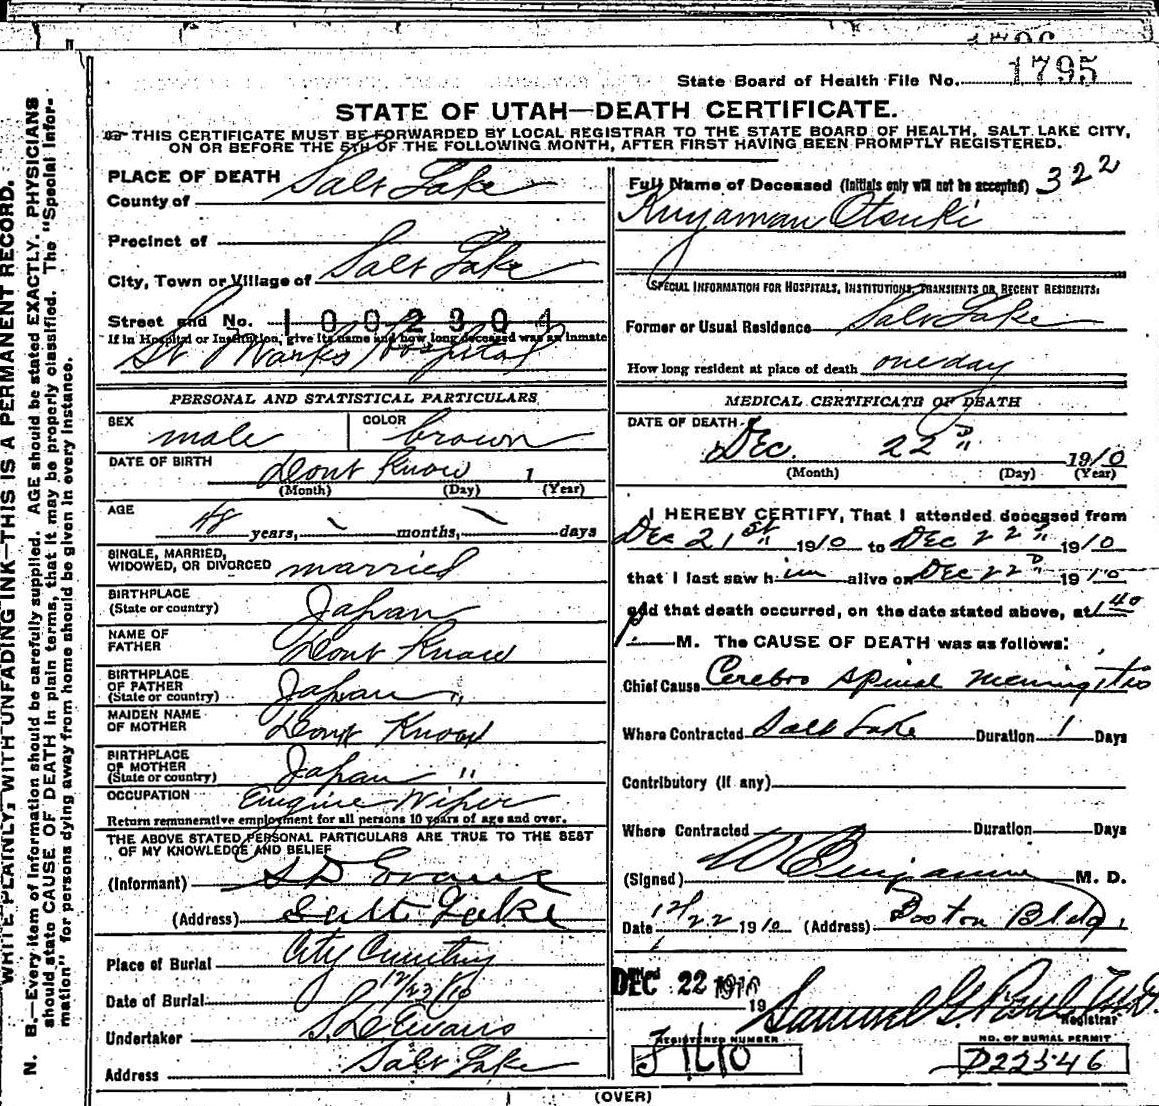 State Board of Health File No. 1795
STATE OF UTAH—DEATH CERTIFICATE.
THIS CERTIFICATE MUST BE FORWARDED BY LOCAL REGISTRAR TO THE STATE BOARD OF HEALTH, SALT LAKE CITY,
ON OR BEFORE THE 5TH OF THE FOLLOWING MONTH, AFTER FIRST HAVING BEEN PROMPTLY REGISTERED.
WRITE PLAINLY, WITH UNFADING INK—THIS IS A PERMANENT RECORD.
N. B.—Every item of information should be carefully supplied. AGE should be stated EXACTLY. PHYSICIANS
should state CAUSE OF DEATH in plain terms, that it may be properly classified. The "Special Infor-
mation" for persons dying away from home should be given in every instance.
PLACE OF DEATH
County of Salt Lake
Precinct of
City, Town or Village of Salt Lake
Street and No. 1002304
If in Hospital or Institution, give its name and how long deceased was an inmate
St Marks Hospital
PERSONAL AND STATISTICAL PARTICULARS
SEX male COLOR brown
DATE OF BIRTH Dont Know 1
(Month) (Day) (Year)
AGE 48 years, months, days
SINGLE, MARRIED,
WIDOWED, OR DIVORCED married
BIRTHPLACE
(State or country) Japan
NAME OF
FATHER Dont Know
BIRTHPLACE
OF FATHER
(State or country) Japan "
MAIDEN NAME
OF MOTHER Dont Know
BIRTHPLACE
OF MOTHER
(State or country) Japan "
OCCUPATION Engine Wiper
Return remunerative employment for all persons 10 years of age and over.
THE ABOVE STATED PERSONAL PARTICULARS ARE TRUE TO THE BEST
OF MY KNOWLEDGE AND BELIEF
(Informant) S D Evans
(Address) Salt Lake
Place of Burial City Cemetery
Date of Burial 12/23/10
Undertaker S. D. Evans
Address Salt Lake
Full Name of Deceased (Initials only will not be accepted) 322
Otsuki
SPECIAL INFORMATION FOR HOSPITALS, INSTITUTIONS, TRANSIENTS OR RECENT RESIDENTS:
Former or Usual Residence Salt Lake
How long resident at place of death one day
MEDICAL CERTIFICATE OF DEATH
DATE OF DEATH
Dec. 22 D 1910
(Month) (Day) (Year)
I HEREBY CERTIFY, That I attended deceased from
Dec 21 st 1910 to Dec 22 D 1910
that I last saw him alive on Dec 22 D 1910
and that death occurred, on the date stated above, at 1 40
P. M. The CAUSE OF DEATH was as follows:
Chief Cause Cerebro spinal meningitis
Where Contracted Salt Lake Duration 1 Days
Contributory (if any)
Where Contracted Duration Days
(Signed) W Benjamin M. D.
Date 12/22 1910 (Address) Boston Bldg
DEC 22 1910 19
Samuel G. Paul M.D.
Registrar
REGISTERED NUMBER NO. OF BURIAL PERMIT
D22546
(OVER)